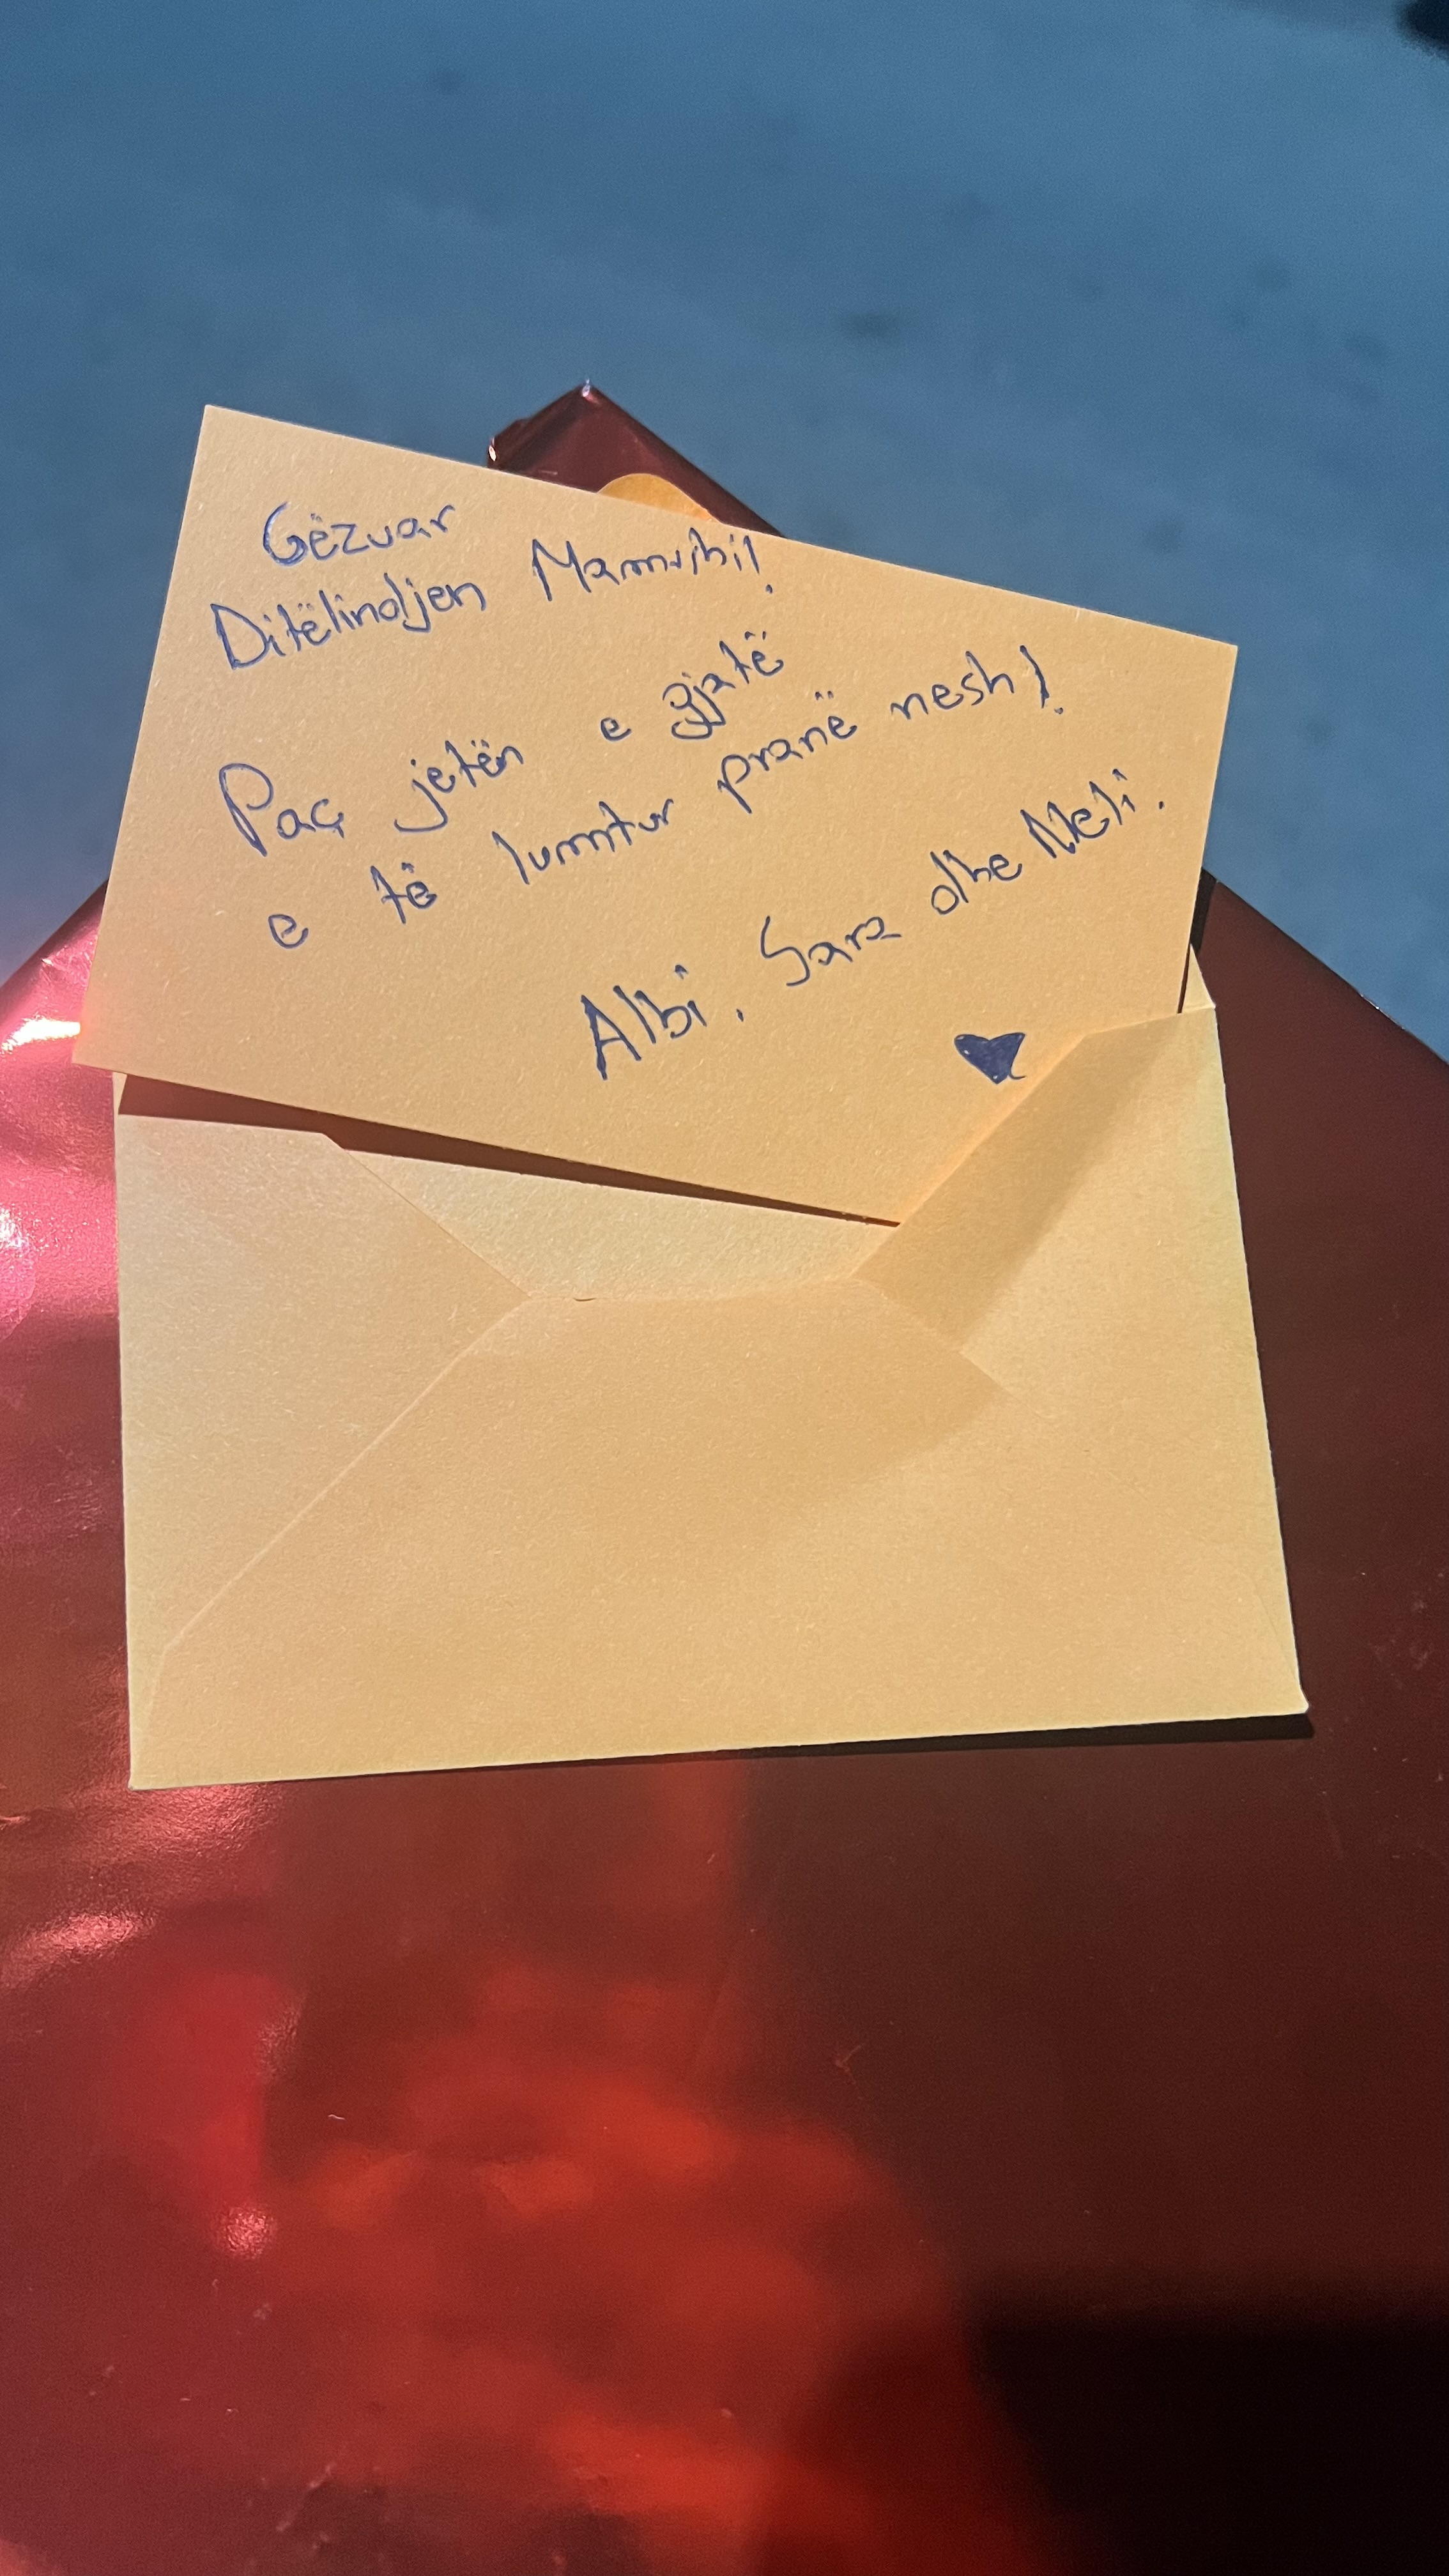 Gëzuar
Ditëlindjen
Paç jetën e gjatë
e të lumtur pranë nesh!
Albi. Sara dhe Neli.